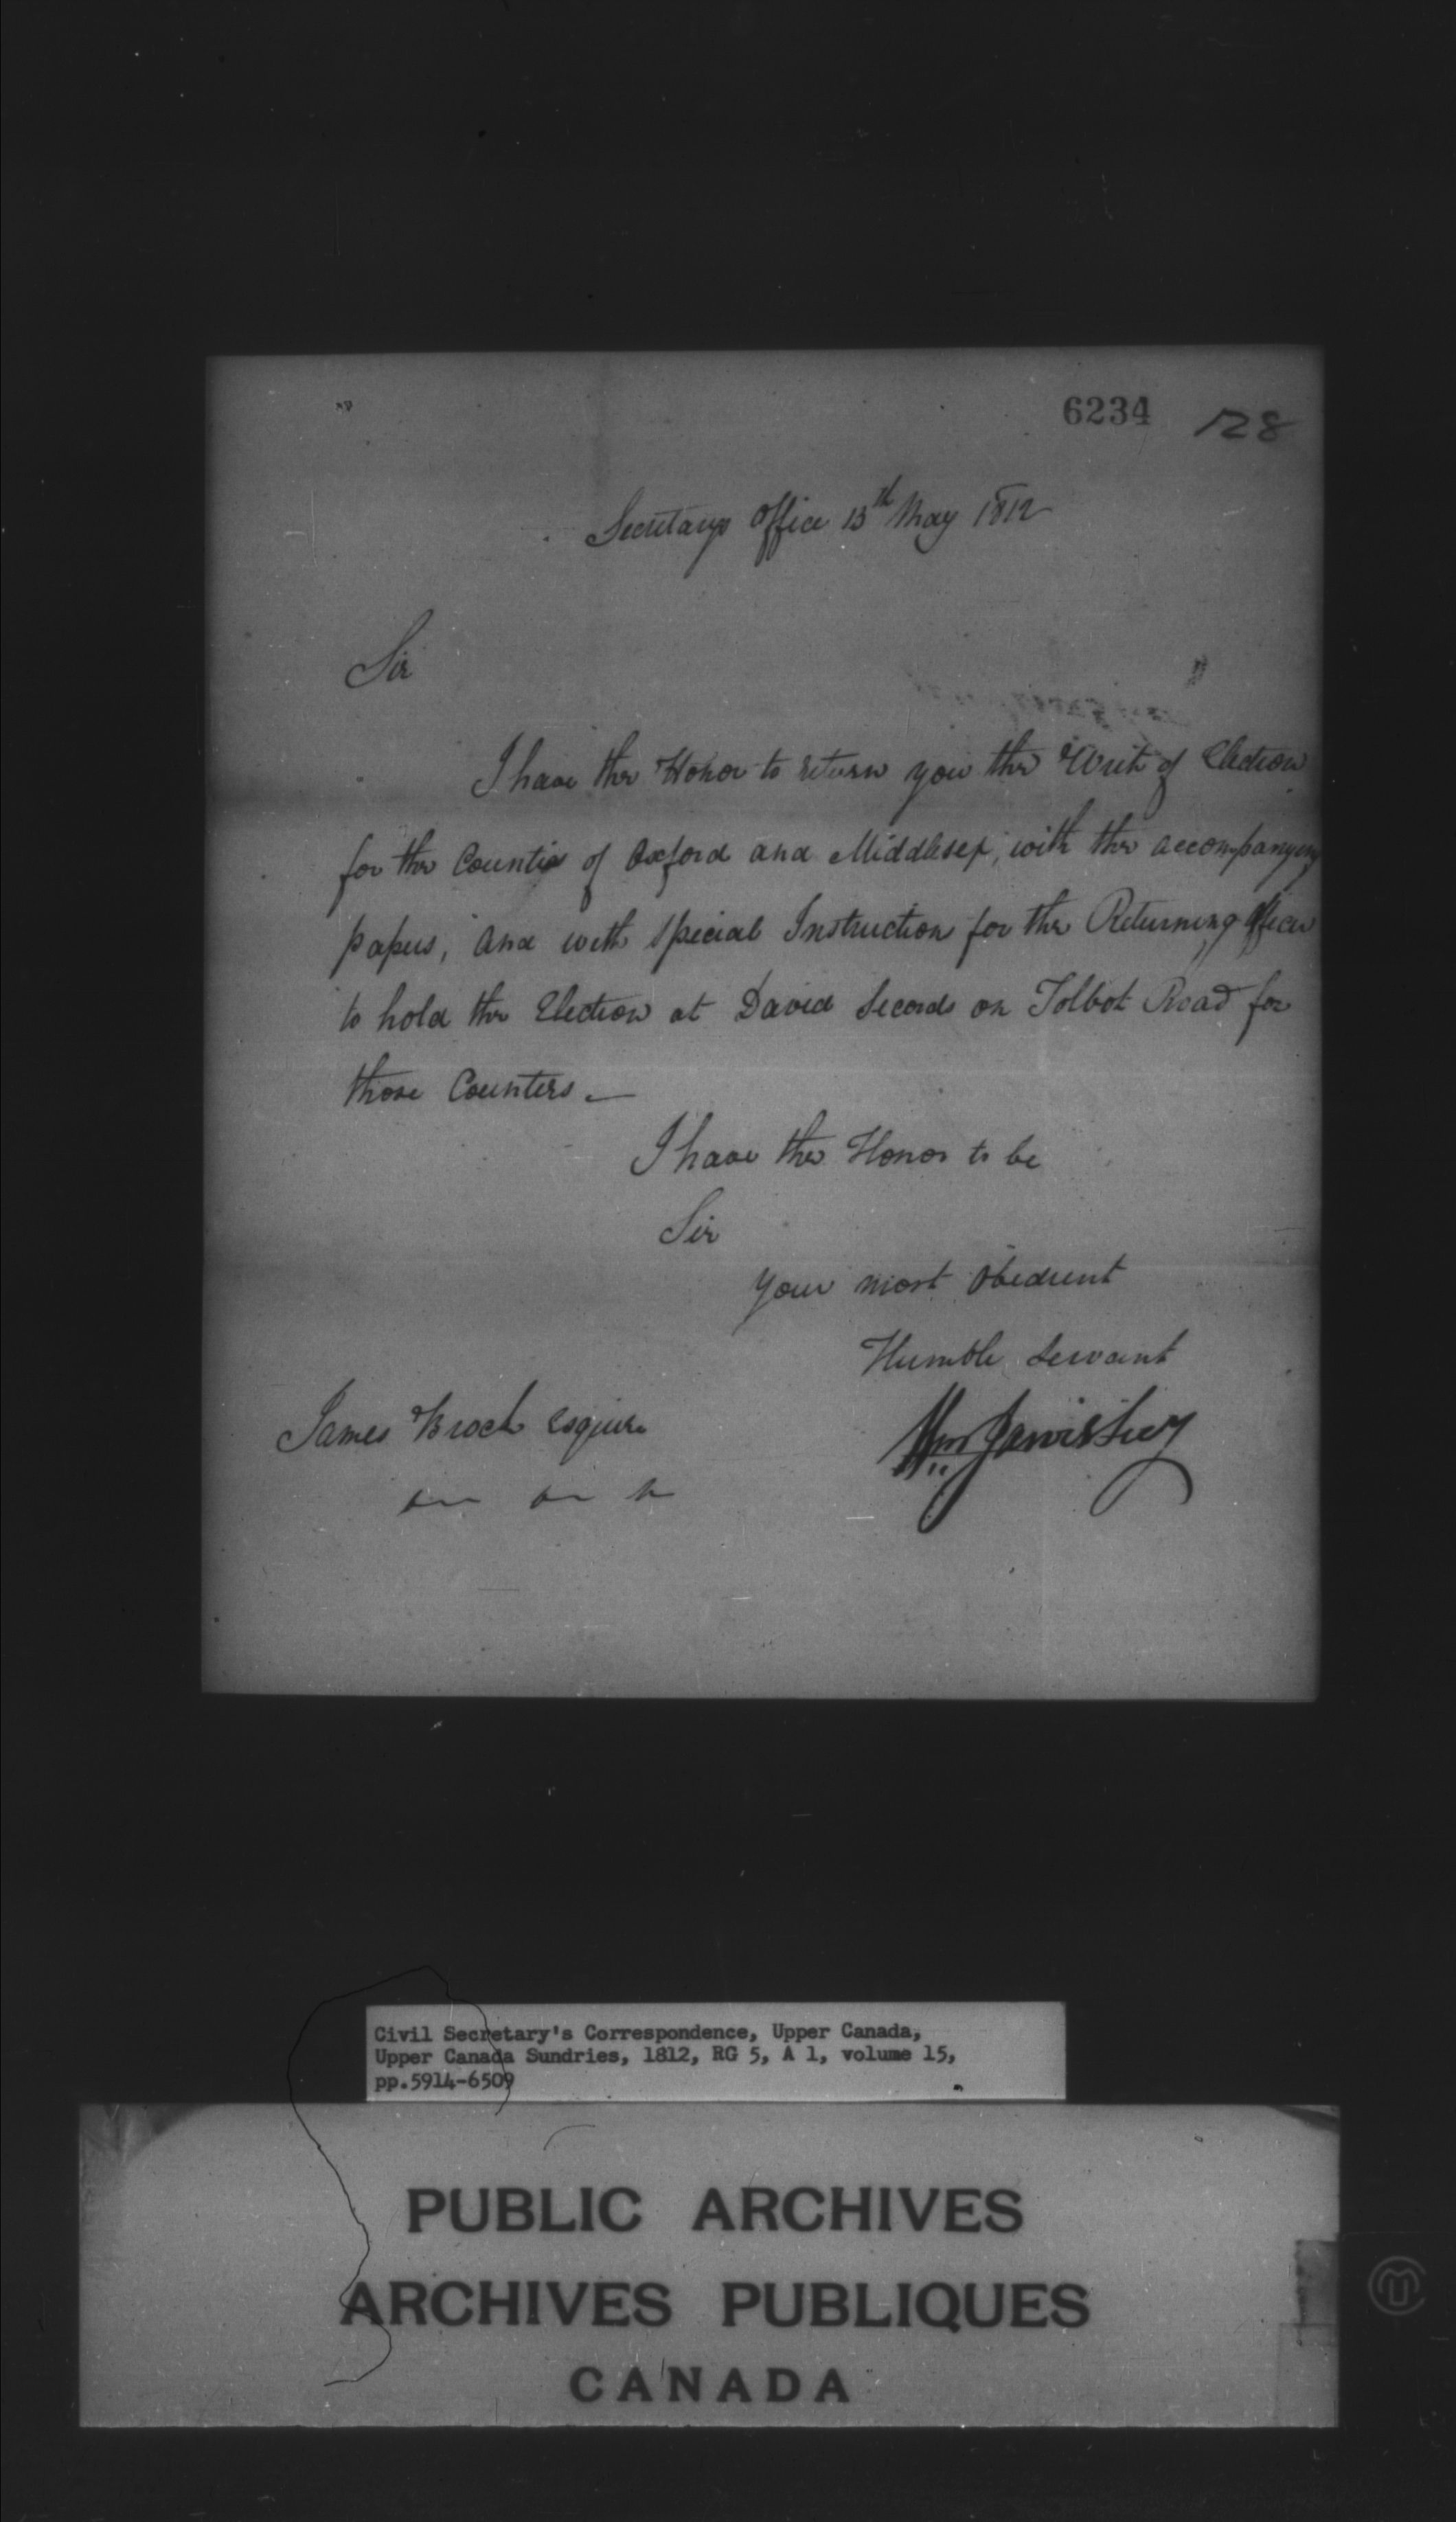 6234 128
Secretarys Office 13th May 1812
Sir
I have the Honor to return you the Writ of Election
for the Counties of Oxford and Middlesex, with the accompanying
papers, and with special Instruction for the Returning Officer
to hold the Election at David Secords on Tolbot Road for
those Counters.
I have the Honor to be
Sir
Your most Obedient
Humble Servant
Wm Jarvis Secy
James Brock Esquire
Civil Secretary's Correspondence, Upper Canada,
Upper Canada Sundries, 1812, RG 5, A 1, volume 15,
pp.5914-6509
PUBLIC ARCHIVES
ARCHIVES PUBLIQUES
CANADA